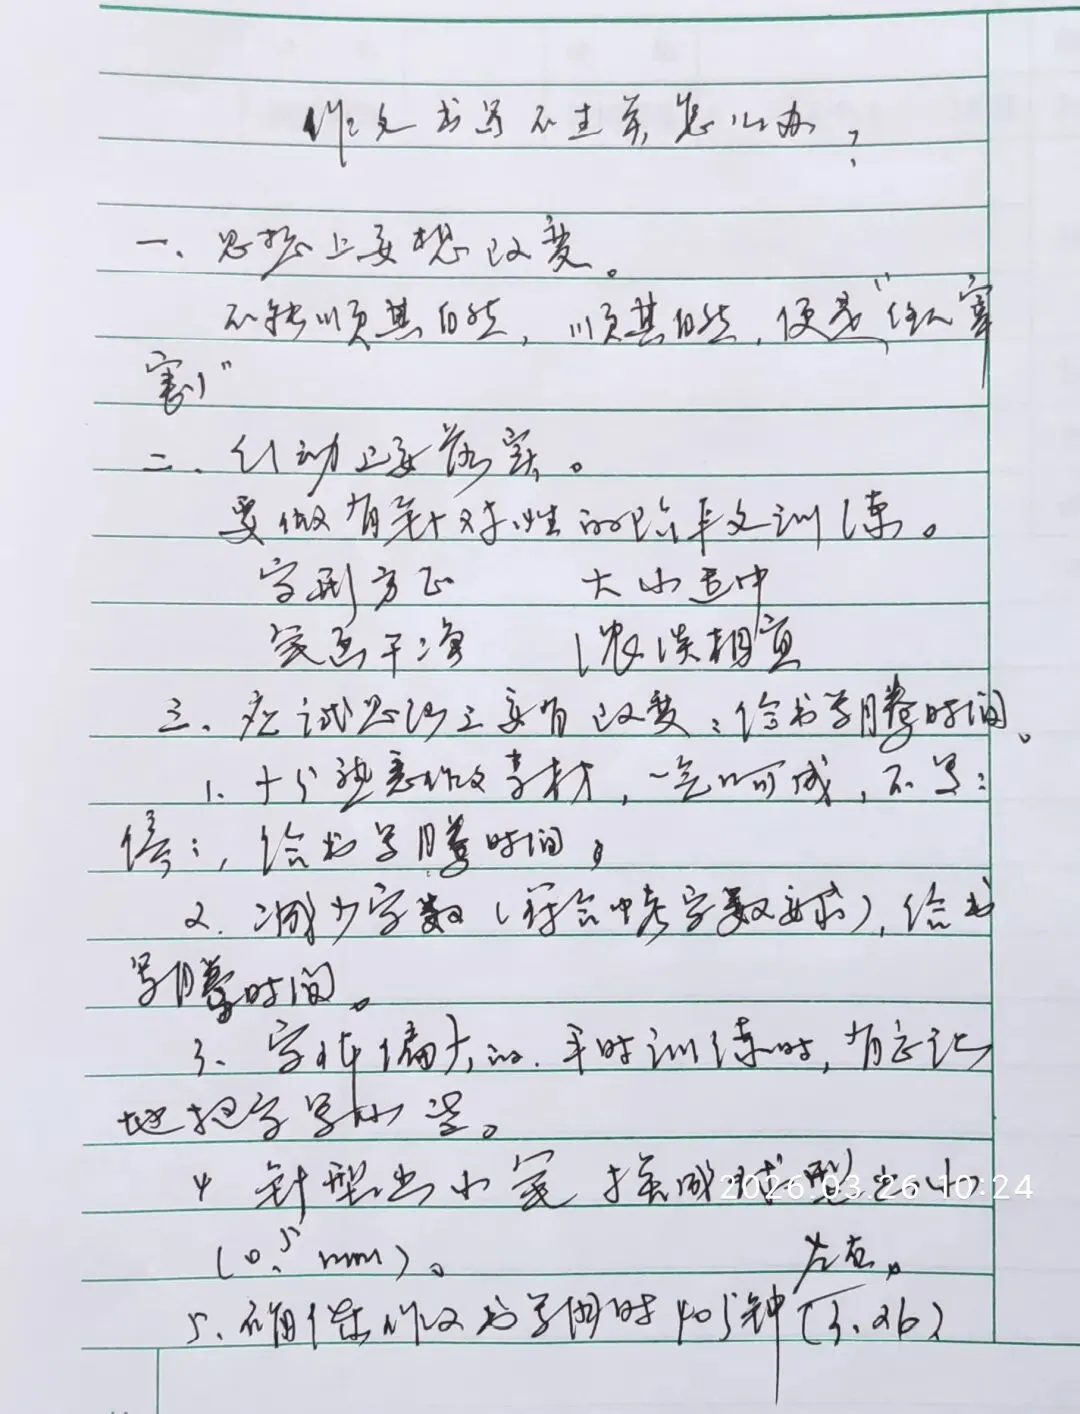 作文书写不过关怎么办？
一、思想上要想改变。
不能顺其自然，顺其自然，便是“任人宰
割”
二、行动上要落实。
要做有针对性的限时文训练。
字形方正 大小适中
笔画干净 浓淡相宜
三、应试思路上要有改变：给书写腾时间。
1. 十个熟悉作文素材，一气呵成，不写：
停：，给书写腾时间。
2. 减少字数（符合中考字数要求），给书
写腾时间。
3、字体偏大的，平时训练时，有意识
地把字写小些。
4 针型出水笔换成球型出水
（0.5mm）。
5、确保作文书写用时40分钟左右。（3.26）
2026.03.26 10:24